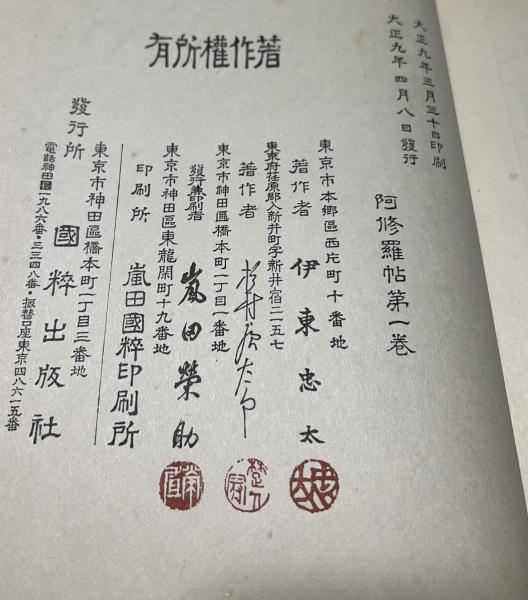 大正九年三月三十日印刷
大正九年四月八日發行
著作權所有
阿修羅帖第一巻
東京市本鄉區西片町十番地
著作者 伊東忠太
東京府荏原郡入新井町字新井宿二一五七
著作者 杉村廣太郎
東京市神田區橋本町一丁目一番地
發行兼印刷者 嵐田榮助
東京市神田區東龍閑町十九番地
印刷所 嵐田國粹印刷所
東京市神田區橋本町一丁目三番地
發行所 國粹出版社
電話神田 一九八六番・三三四八番・振替口座東京四八六一五番